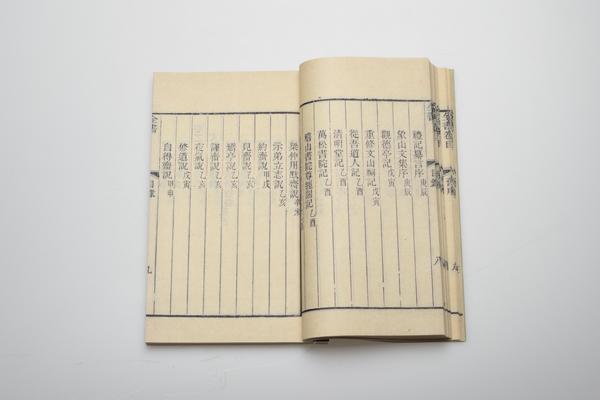 禮記纂言序 庚辰
象山文集序 庚辰
觀德亭記 戊寅
重修文山祠記 戊寅
從吾道人記 乙酉
清明堂記 乙酉
萬松書院記 乙酉
稽山書院尊經閣記 乙酉
梁仲用默齋說 辛未
示弟立志說 乙亥
約齋說 甲戌
見齋說 乙亥
矯亭說 乙亥
謹齋說 乙亥
夜氣說 乙亥
修道說 戊寅
自得齋說 甲申
全書
目錄
九